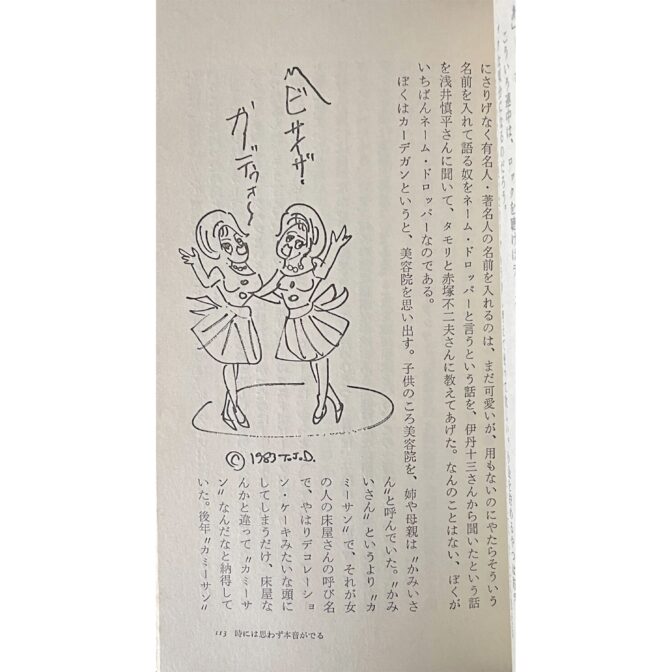 にさりげなく有名人・著名人の名前を入れるのは、まだ可愛いが、用もないのにやたらそういう
名前を入れて語る奴をネーム・ドロッパーと言うという話を、伊丹十三さんから聞いたという話
を浅井慎平さんに聞いて、タモリと赤塚不二夫さんに教えてあげた。なんのことはない、ぼくが
いちばんネーム・ドロッパーなのである。
ぼくはカーデガンというと、美容院を思い出す。子供のころ美容院を、姉や母親は〝かみいさ
ん〟と呼んでいた。〝かみ
いさん〟というより〝カ
ミーサン〟で、それが女
の人の床屋さんの呼び名
で、やはりデコレーショ
ン・ケーキみたいな頭に
してしまうだけ、床屋な
んかと違って〝カミーサ
ン〟なんだなと納得して
いた。後年〝カミーサン〟
ヘビサイザ・
ガディウォ〜
© 1983 T.J.D.
113 時には思わず本音がでる